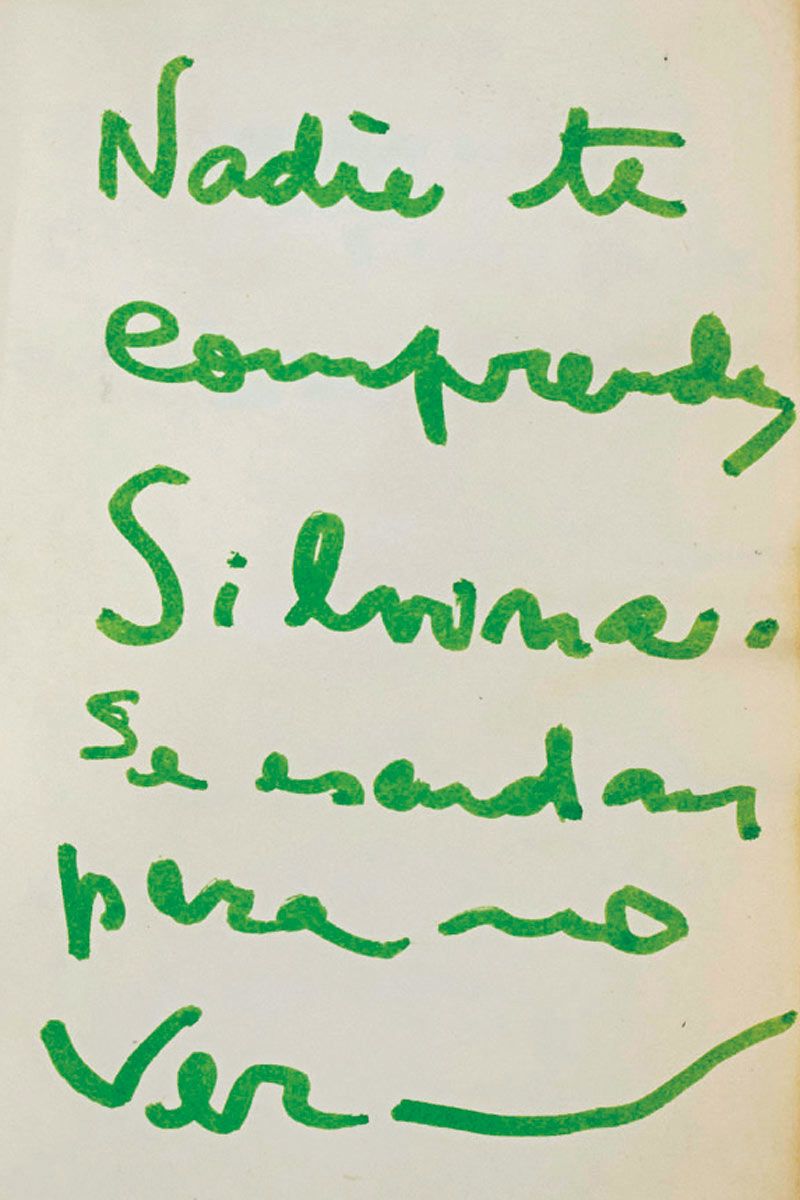 Nadie te
comprende,
Silvina.
Se esconden
para no
Ver